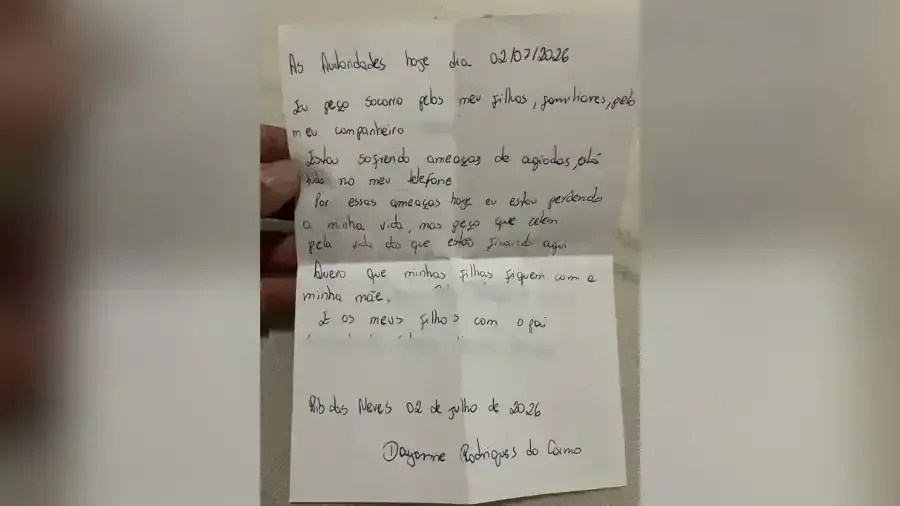 As Autoridades hoje dia 02/07/2026
Eu peço socorro pelos meu filhos, familiares, pelo
meu companheiro
Estou sofrendo ameaças de agiotas, está
tudo no meu telefone
Por essas ameaças hoje eu estou perdendo
a minha vida, mas peço que zelem
pela vida dos que estão ficando aqui
Quero que minhas filhas fiquem com a
minha mãe.
E os meus filhos com o pai
Rib das Neves 02 de julho de 2026
Dayanne Rodrigues do Carmo